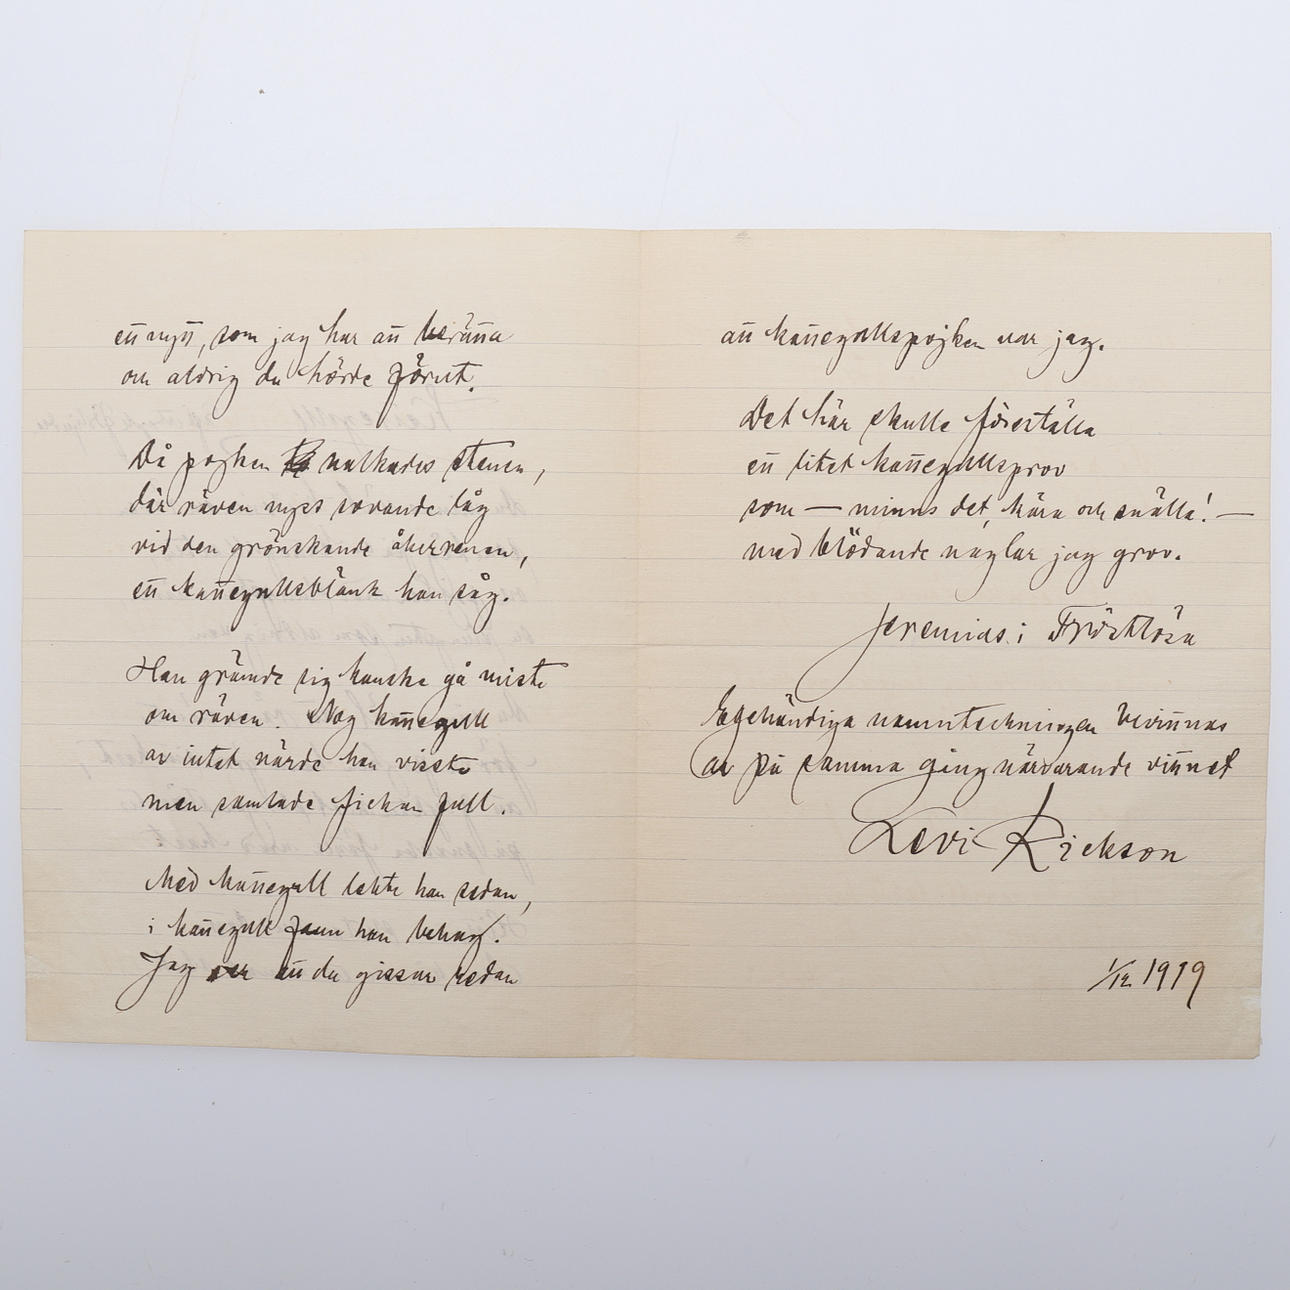 ett nytt, som jag har att berätta
om aldrig du hörde förut.
Då pojken nalkades stenen,
där räven nyss sovande låg
vid den grönskande åkerrenen,
ett kattegullsblänk han såg.
Han grämde sig kanske gå miste
om räven. Nog kattegull
av intet värde han visste
men samlade fickan full.
Med kattegull lekte han sedan,
i kattegull fann han behag.
Jag ser att du gissar redan
att kattegullspojken var jag.
Det här skulle föreställa
ett litet kattegullsprov
som — minns det, kära och snälla! —
med blödande naglar jag grov.
Jeremias i Tröstlösa
Egenhändiga namnteckningen bevittnas
av på samma gång närvarande vittnet
Levi Rickson
1/12 1919